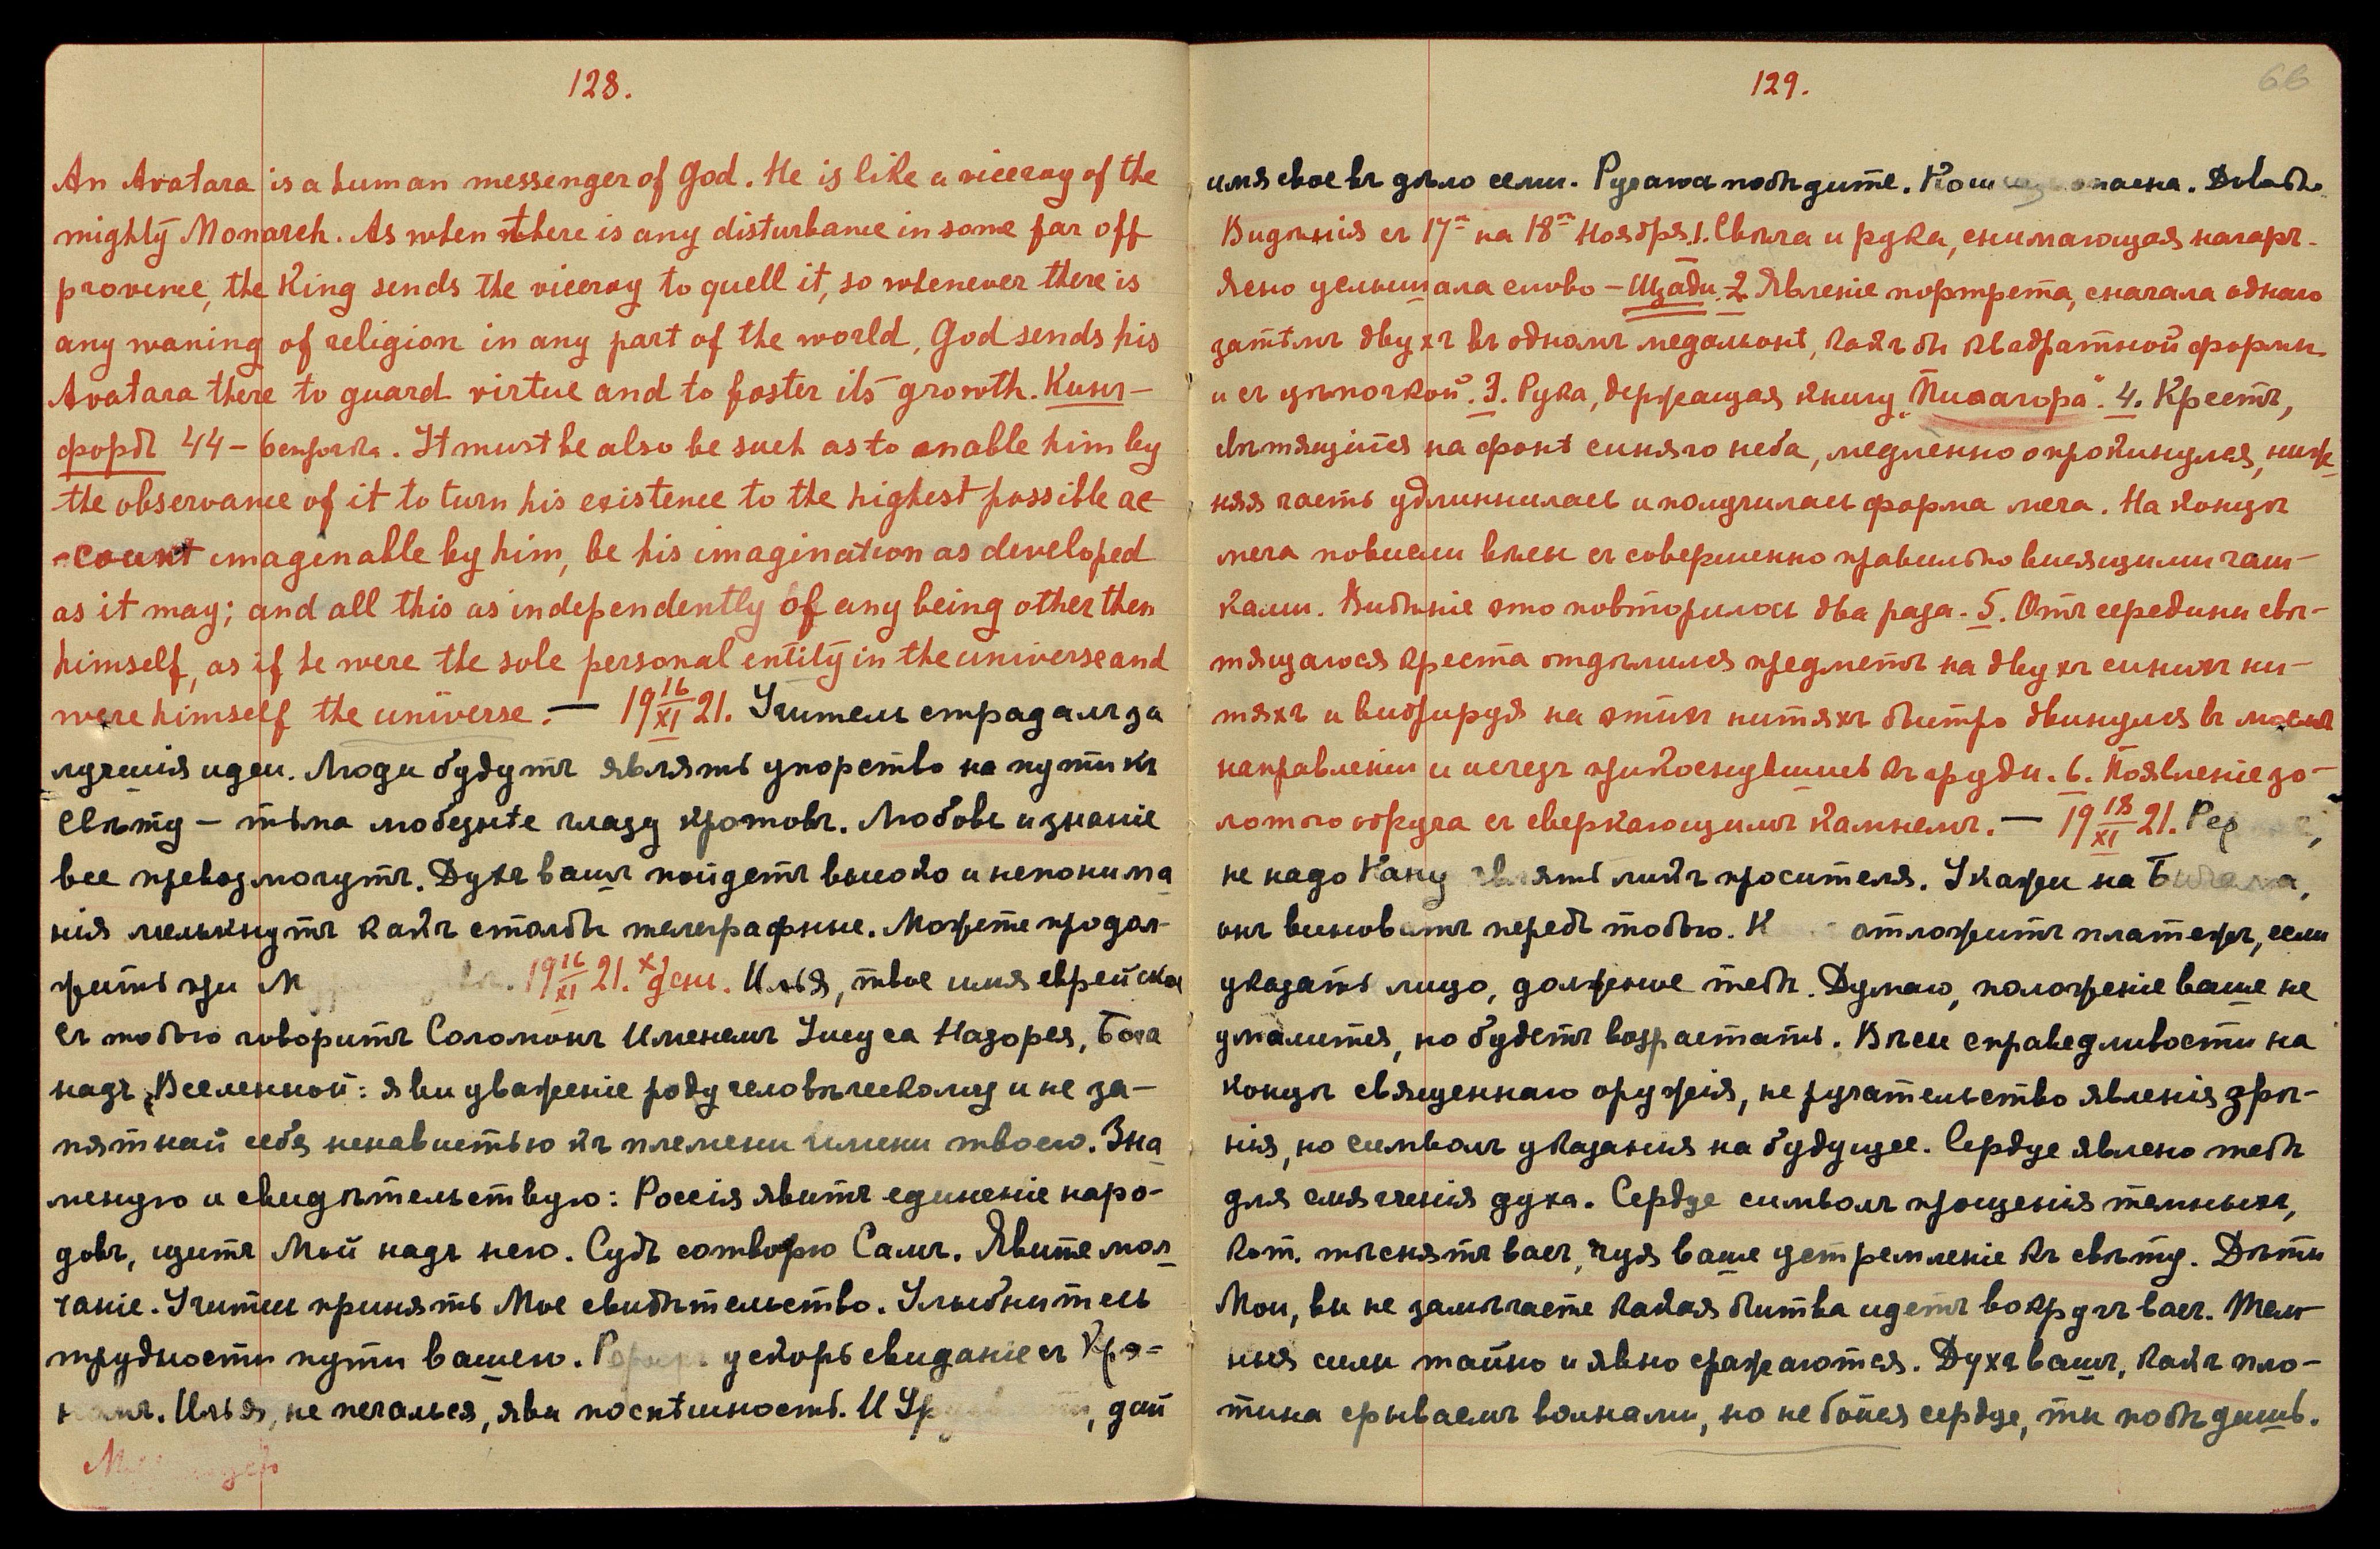 128.
An Avatara is a human messenger of God. He is like a viceroy of the
mighty Monarch. As when there is any disturbance in some far off
province, the King sends the viceroy to quell it, so whenever there is
any waning of religion in any part of the world, God sends his
Avatara there to guard virtue and to foster its growth. Кинг-
фордъ 44 – It must be also be such as to enable him by
the observance of it to turn his existence to the highest possible ac-
-count imaginable by him, be his imagination as developed
as it may; and all this as independently of any being other then
himself, as if he were the sole personal entity in the universe and
were himself the universe. — 19 16/XI 21. Учитель страдалъ за
лучшія идеи. Люди будутъ являть упорство на пути къ
Свѣту – тьма любезнѣе глазу кротовъ. Любовь и знаніе
все превозмогутъ. Духъ вашъ пойдетъ высоко и непонима-
нія мелькнутъ какъ столбы телеграфные. Можете продол-
жить при М 19 16/XI 21. Илья, твое имя еврейское
съ тобою говоритъ Соломонъ Именемъ Iисуса Назорея, Бога
надъ Вселенной: яви уваженіе роду человѣческому и не за-
пятнай себя ненавистью къ племени имени твоего. Зна-
меную и свидѣтельствую: Россія явитъ единеніе наро-
довъ, щитъ Мой надъ нею. Судъ сотворю Самъ. Явите мол-
чаніе. Учитесь принять Мое свидѣтельство. Улыбнитесь
трудности пути вашего. ускорь свиданіе съ Крэ-
Илья, не печалься, яви поспѣшность. И дай
129.
66
имя свое въ дѣло семи. побѣдите. опасна.
Видѣнія съ 17го на 18ое Ноября. 1. Свѣча и рука, снимающая нагаръ.
Ясно услышала слово – Щади. 2. Явленіе портрета, сначала одного
затѣмъ двухъ въ одномъ медальонѣ, какъ бы квадратной формы
и съ цѣпочкой. 3. Рука, держащая книгу „Пиѳагора". 4. Крестъ,
свѣтящійся на фонѣ синяго неба, медленно опрокинулся, ниж-
няя часть удлиннилась и получилась форма меча. На концѣ
меча повисли вѣсы съ совершенно правильно висящими чаш-
ками. Видѣніе это повторилось два раза. 5. Отъ середины свѣ-
тящагося креста отдѣлился предметъ на двухъ синихъ ни-
тяхъ и вибрируя на этихъ нитяхъ быстро двинулся въ моемъ
направленіи и исчезъ прикоснувшись къ груди. 6. Появленіе зо-
лотого обруча съ сверкающимъ камнемъ. — 19 18/XI 21.
не надо Кану являть ликъ просителя. Укажи на
онъ виноватъ передъ тобою. К отложитъ платежъ, если
указать лицо, должное тебѣ. Думаю, положеніе ваше не
умалится, но будетъ возрастать. Вѣсы справедливости на
концѣ священнаго оружія, не ручательство явленія зрѣ-
нія, но символъ указанія на будущее. Сердце явлено тебѣ
для смягченія духа. Сердце символъ прощенія темныхъ,
кот. тѣснятъ васъ, чуя ваше устремленіе къ свѣту. Дѣти
Мои, вы не замѣчаете какая битва идетъ вокругъ васъ. Тем-
ныя силы тайно и явно сражаются. Духъ вашъ, какъ пло-
тина срываемъ волнами, но не бойся сердце, ты побѣдишь.